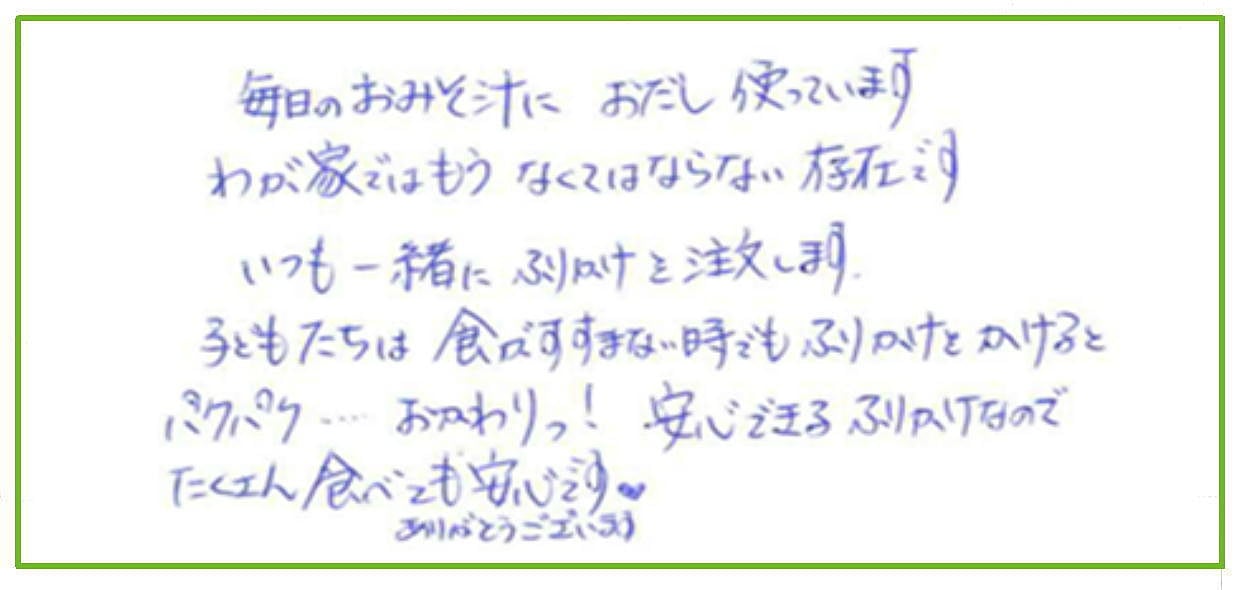 毎日のおみそ汁に おだし 使っています
わが家ではもう なくてはならない 存在です
いつも一緒に ふりかけと注文します.
子どもたちは 食がすすまない時でも ふりかけを かけると
パクパク…… おかわりっ! 安心できる ふりかけなので
たくさん 食べても 安心です♥
ありがとうございます